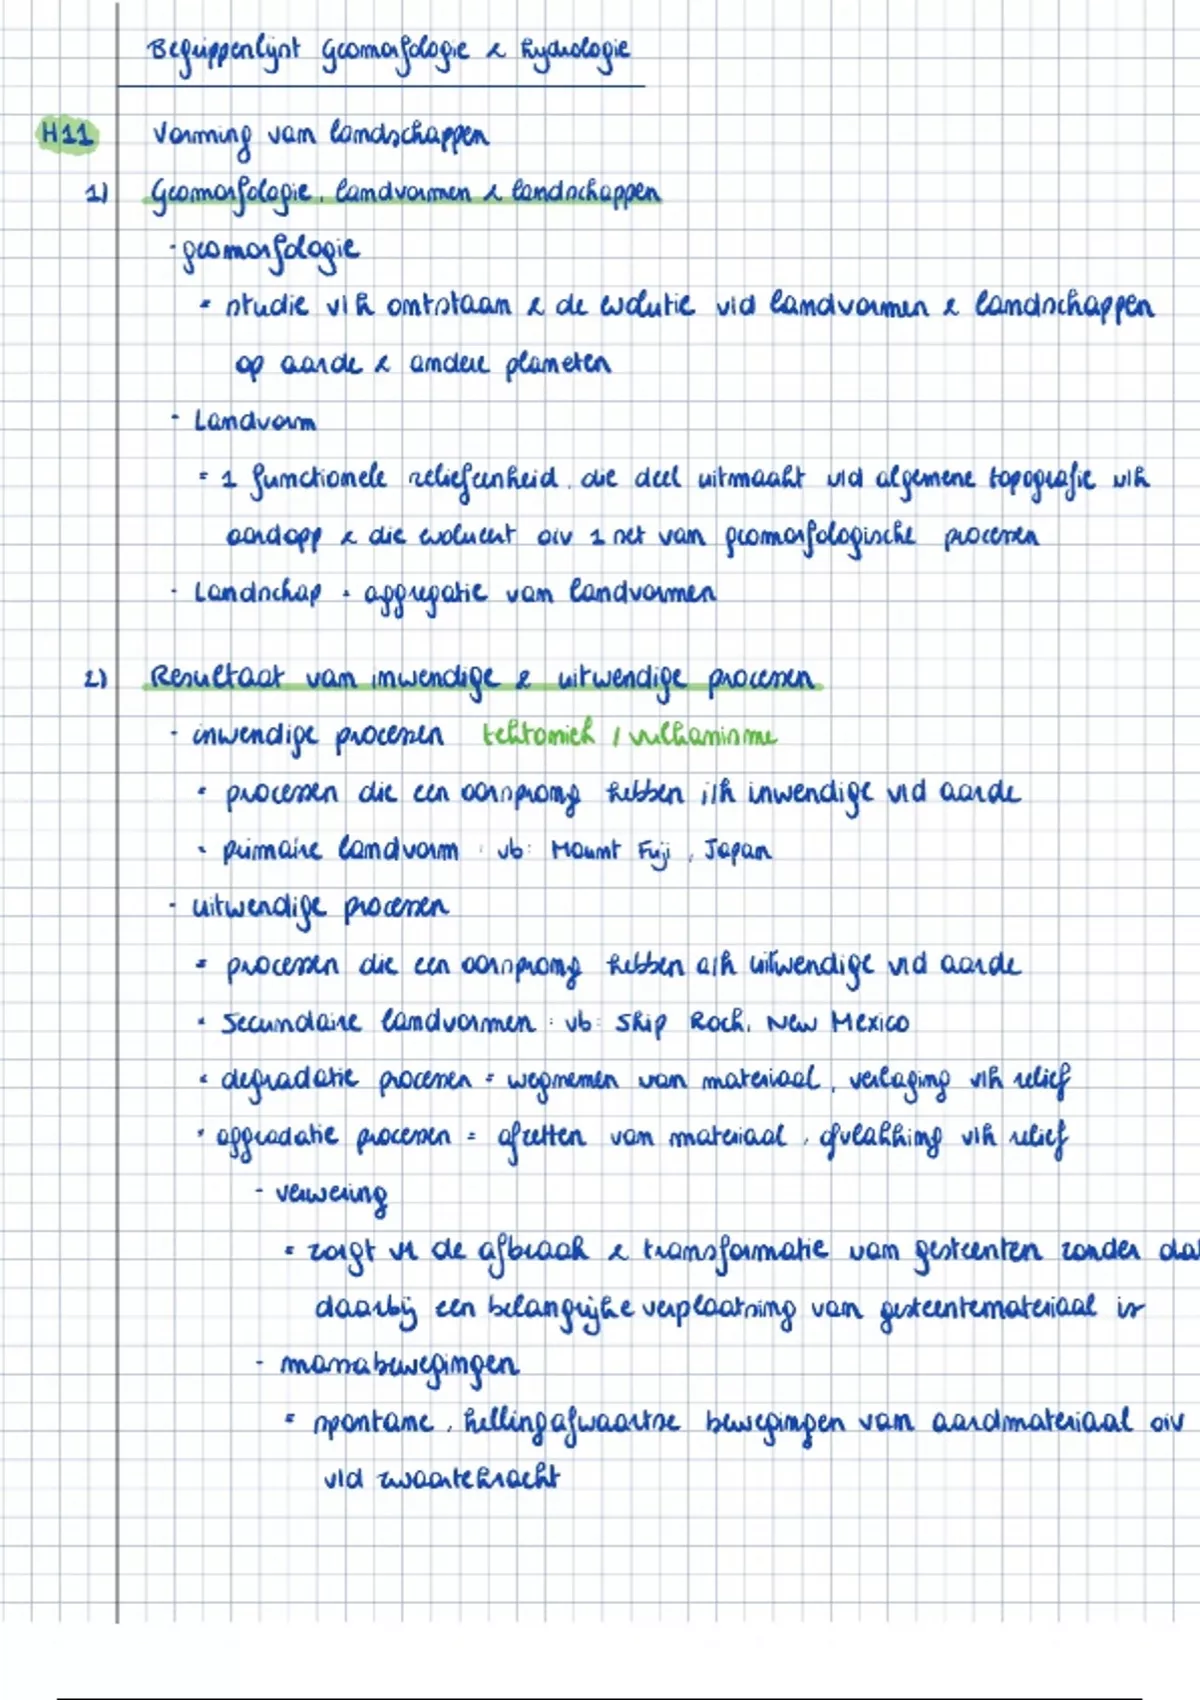 Begrippenlijst Geomorfologie & hydrologie
H11 Vorming van landschappen
1) Geomorfologie, landvormen & landschappen
- geomorfologie
= studie v/h ontstaan & de evolutie v/d landvormen & landschappen
op aarde & andere planeten
- Landvorm
= 1 functionele reliefeenheid die deel uitmaakt v/d algemene topografie v/h
aardopp & die evolueert oiv 1 set van geomorfologische processen
- Landschap = aggregatie van landvormen
2) Resultaat van inwendige & uitwendige processen
- inwendige processen tektoniek / vulkanisme
= processen die een oorsprong hebben i/h inwendige v/d aarde
• primaire landvorm : vb: Mount Fuji, Japan
- uitwendige processen
= processen die een oorsprong hebben a/h uitwendige v/d aarde
• secundaire landvormen : vb: Ship Rock, New Mexico
• degradatie processen = wegnemen van materiaal, verlaging v/h relief
• aggradatie processen = afzetten van materiaal, afvlakking v/h relief
- verwering
= zorgt vr de afbraak & transformatie van gesteenten zonder dat
daarbij een belangrijke verplaatsing van gesteentemateriaal is
- massabewegingen
= spontane, hellingafwaartse bewegingen van aardmateriaal oiv
v/d zwaartekracht